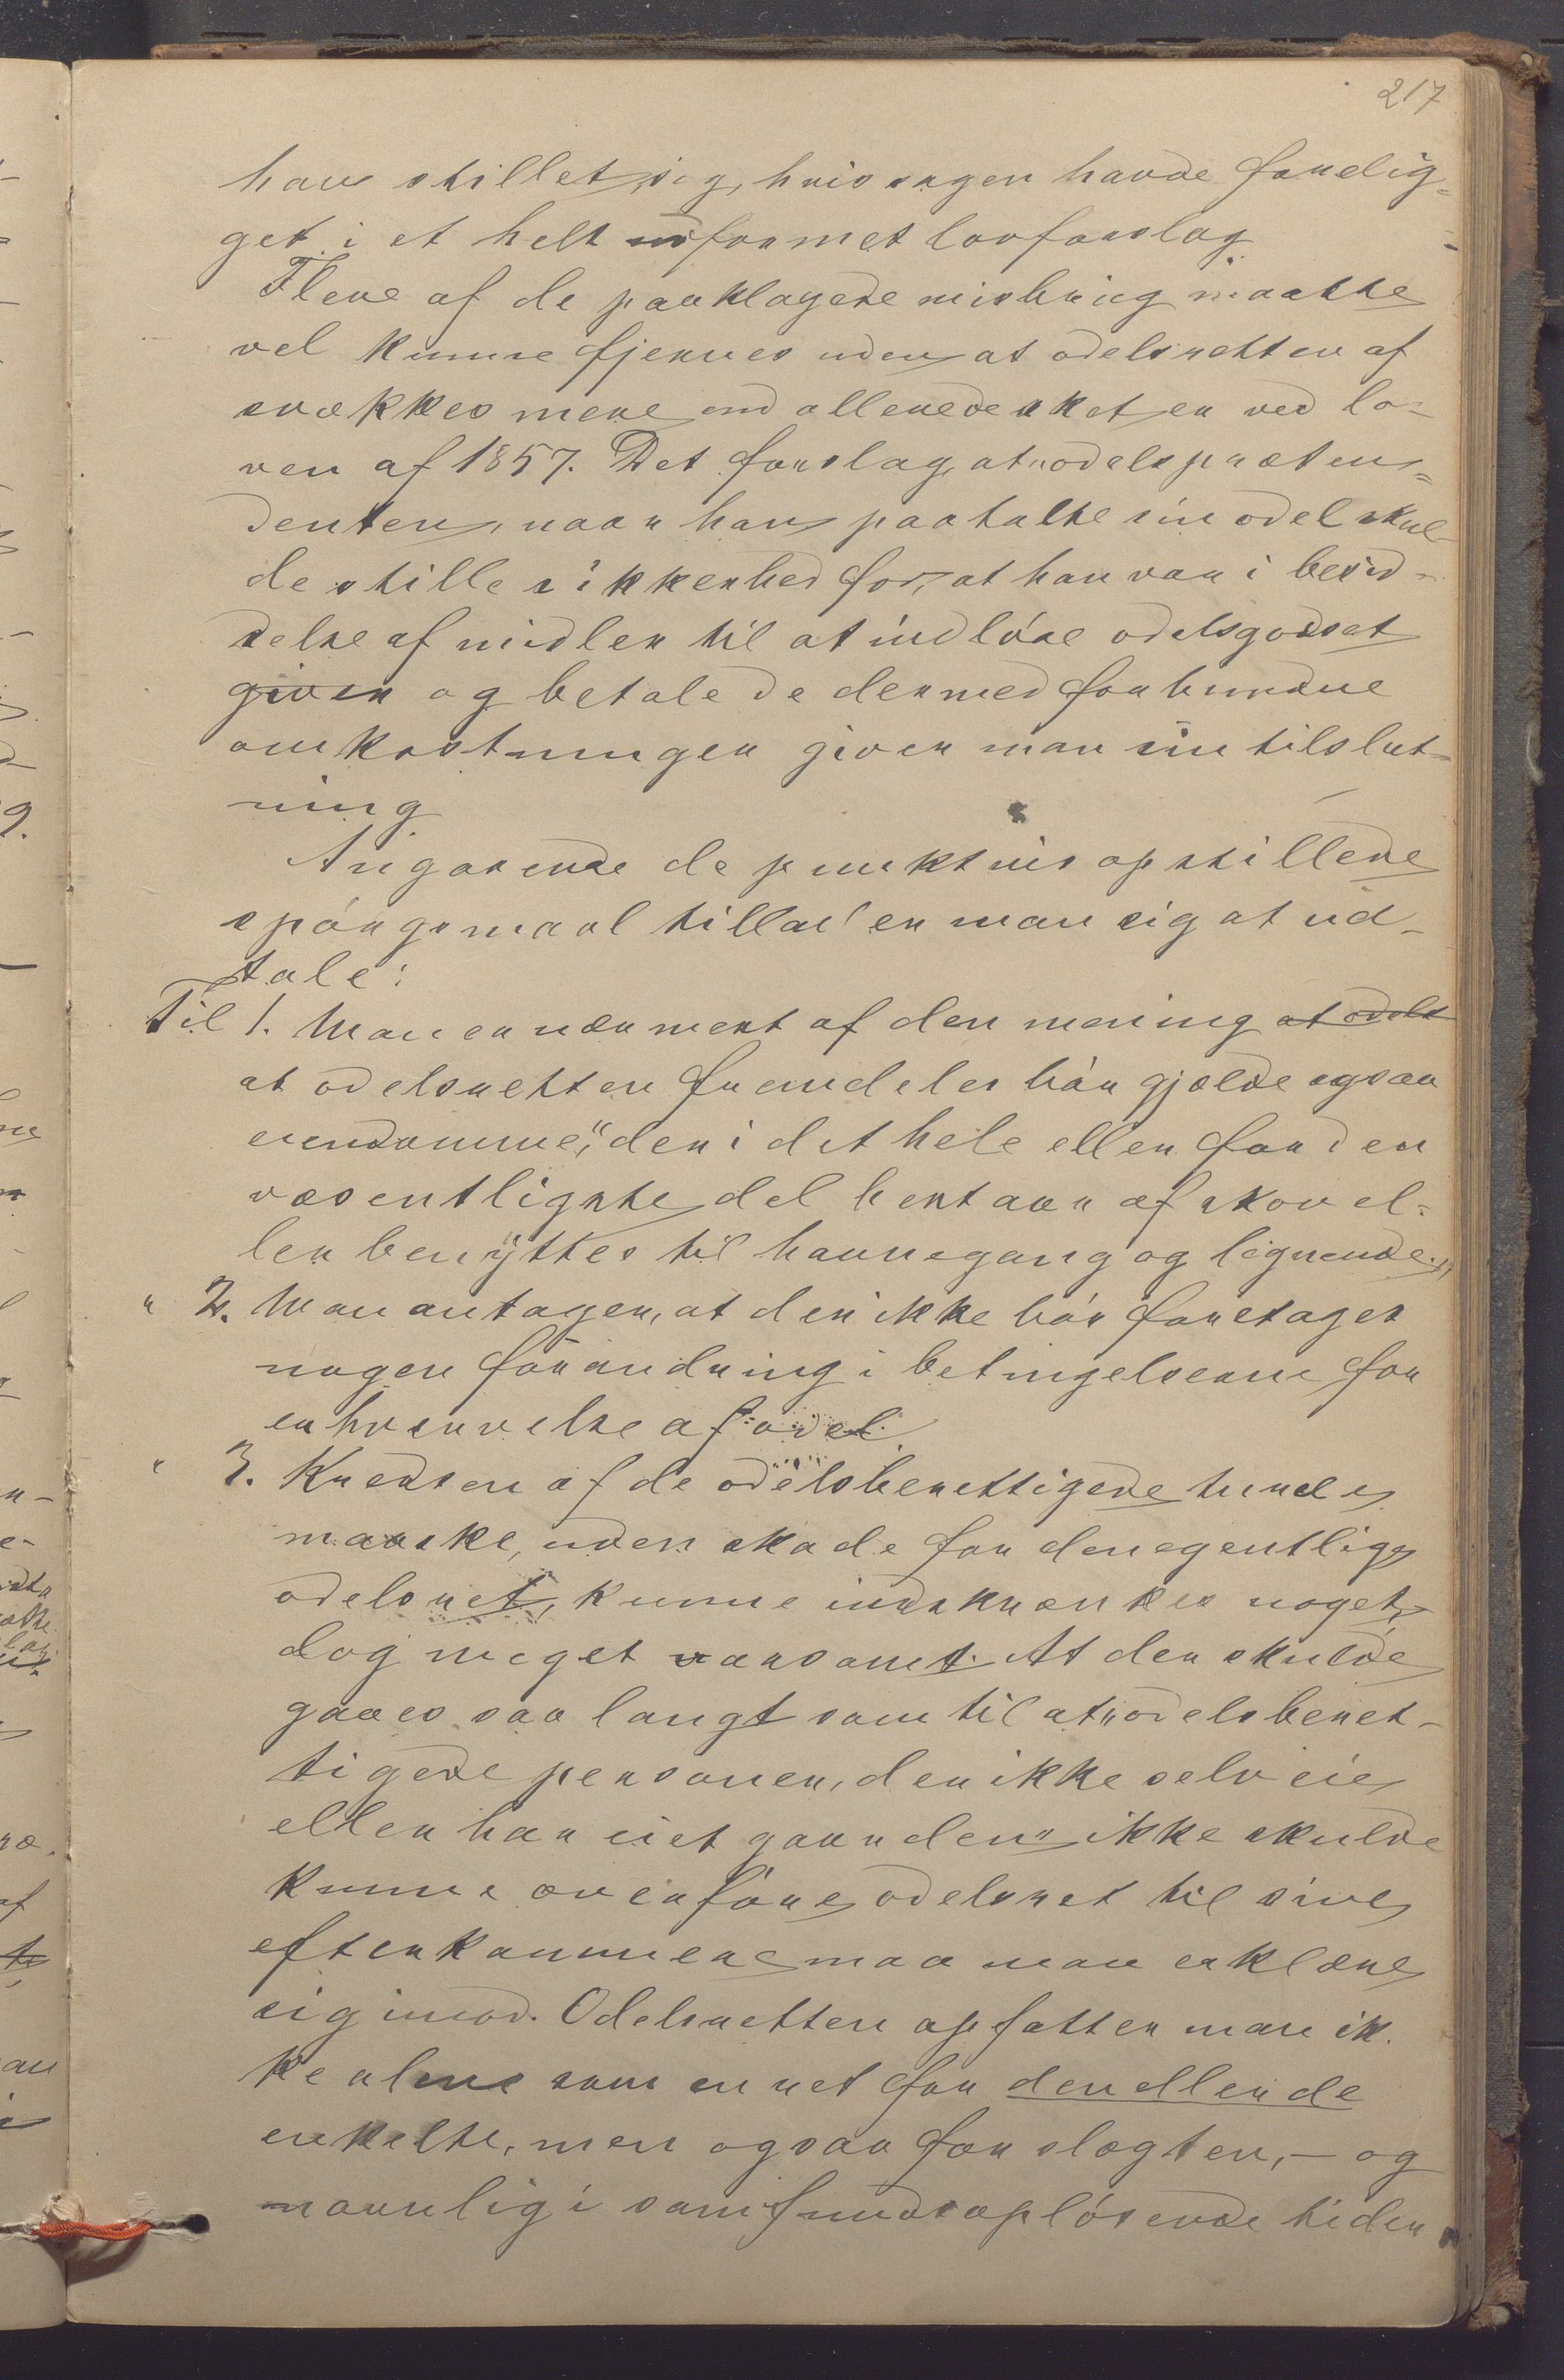 217
have stillet sig, hvis sagen havde forelig-
get i et helt udformet lovforslag.
Flere af de paaklagede misbrug maatte
vel kunne fjernes uden at odelsretten af
svækkes mere end allerede sket er ved lo-
ven af 1857. Det forslag, at "odelspræten-
denten, naar han paatalte sin odel skul-
de stille sikkerhed for, at han var i besid-
delse af midler til at indløse odelsgodset
giver og betale de dermed forbundne
omkostninger giver man sin tilslut-
ning.
Angaaende de punktvis opstillede
spørgsmaal tillader man sig at ud-
tale:
Til 1. Man er nærmest af den mening at odels
at odelsretten fremdeles bør gjælde ogsaa
eiendomme, "der i det hele eller for den
væsentligste del bestaar af skov el-
ler benyttes til havnegang og lignende."
" 2. Man antager, at der ikke bør foretages
nogen forandring i betingelserne for
erhvervelse af odel.
" 3. Kredsen af de odelsberettigede turde
maaske, uden skade for den egentlige
odelsret, kunne indskrænkes noget,
dog meget varsomt. At der skulde
gaaes saa langt som til at "odelsberet-
tigede personer, der ikke selv eie
eller har eiet gaarden" ikke skulde
kunne overføre odelsret til sine
efterkommere maa man erklære
sig imod. Odelsretten opfatter man ik-
ke alene som en ret for den eller de
enkelte, men ogsaa for slægten, - og
navnlig i samfundsopløsende tider